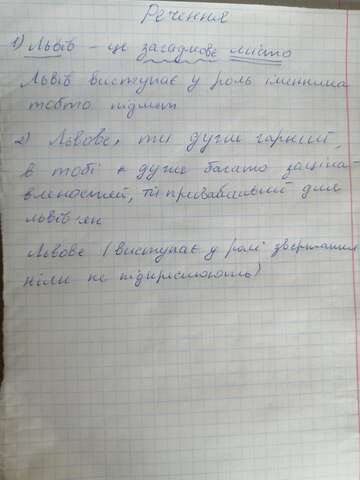 Речення
1) Львів – це загадкове місто
Львів виступає у роль іменника
тобто підмет
2) Львове, ти дуже гарний,
в тобі є дуже багато заціка-
вленостей, ти привабливий для
львів'ян
Львове (виступає у ролі звертання
ніли не підкреслюють)